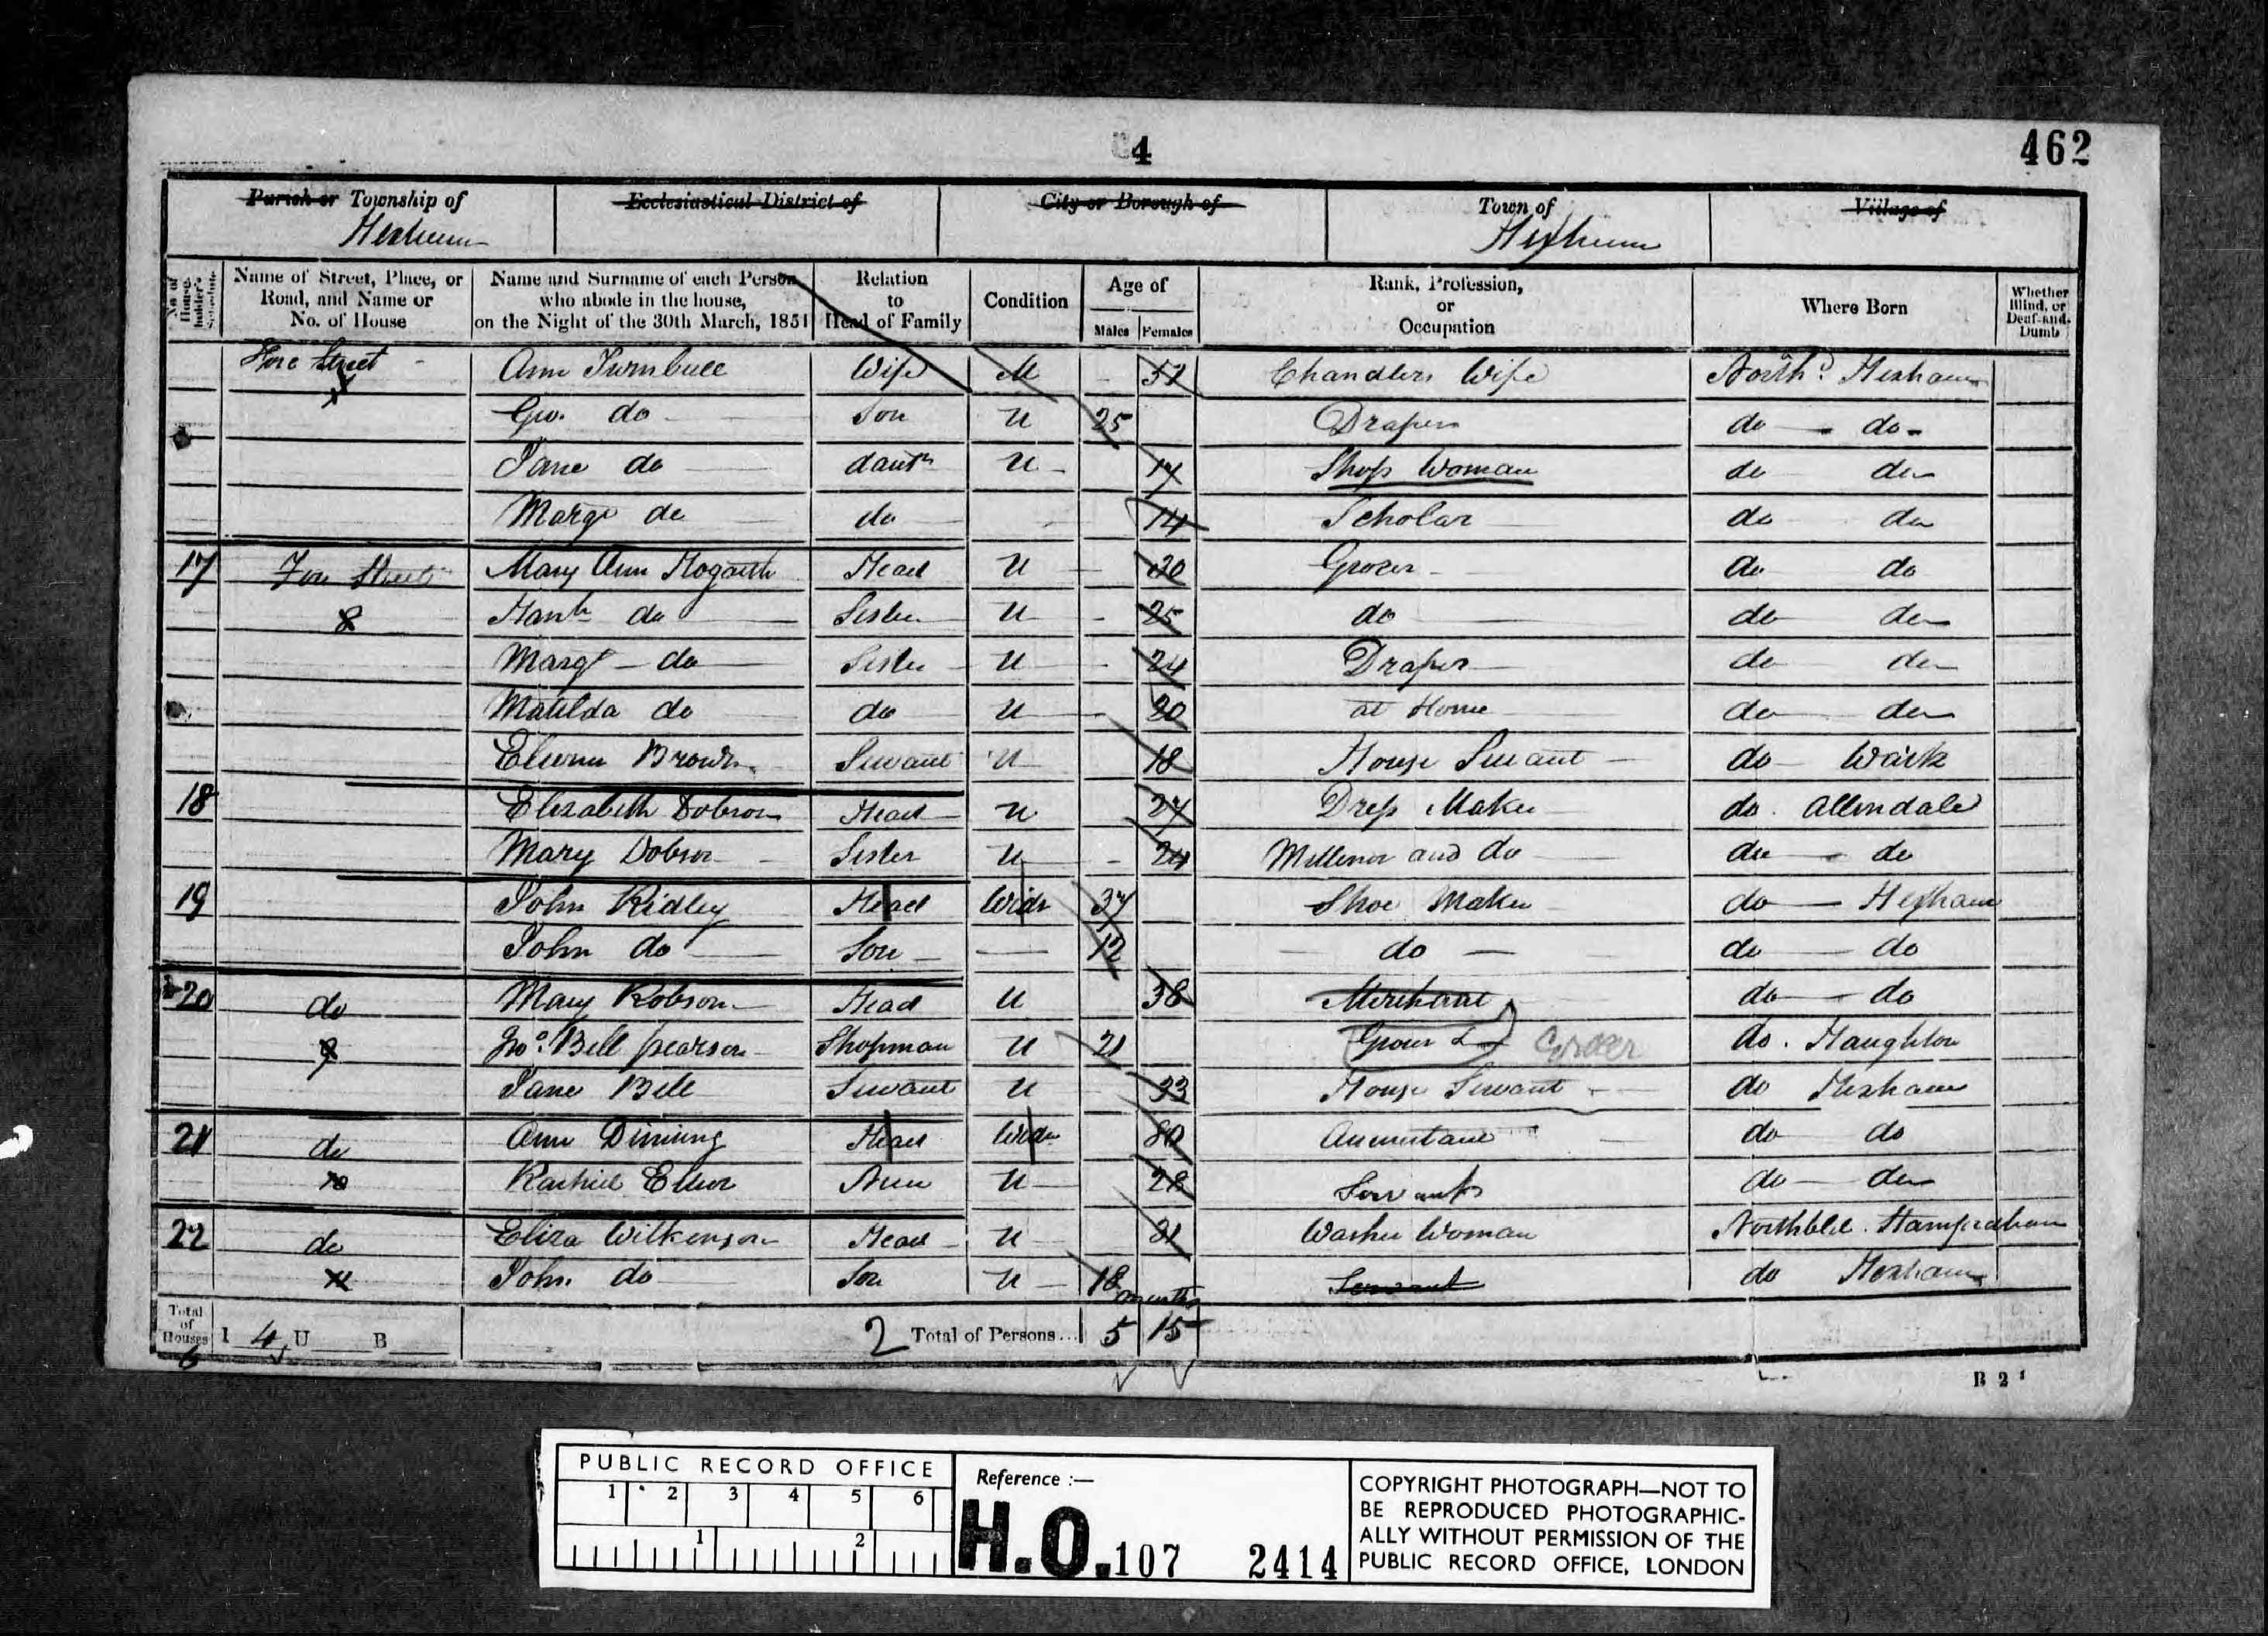 4
462
Parish or Township of Hexham
Ecclesiastical District of
City or Borough of
Town of Hexham
Village of
No. of House-holder's Schedule
Name of Street, Place, or Road, and Name or No. of House
Name and Surname of each Person who abode in the house, on the Night of the 30th March, 1851
Relation to Head of Family
Condition
Age of
Males
Females
Rank, Profession, or Occupation
Where Born
Whether Blind, or Deaf-and-Dumb
Fore Street Ann Turnbull Wife M Chandlers Wife North.d Hexham
Geo. do Son U 25 Draper do do
Jane do daur U 17 Shop Woman do do
Margt do do 14 Scholar do do
17 Fore Street Mary Ann Hogarth Head U 30 Grocer do do
8 Hanh do Sister U 25 do do do
Margt do Sister U 24 Draper do do
Matilda do do U 20 at Home do do
Brown Servant U 18 House Servant do Wark
18 Elizabeth Dobson Head U 27 Dress Maker do Allendale
Mary Dobson Sister U 24 Millener and do do do
19 John Ridley Head Widr 37 Shoe Maker do Hexham
John do Son 12 do do do
20 do Mary Robson Head U 38 Merchant do do
9 Jno. Bell pearson Shopman U 21 Grocer Grocer do. Haughton
Jane Bell Servant U 33 House Servant do Hexham
21 do Ann Dinning Head Widw 80 Annuitant do do
10 U 28 Servant do do
22 do Eliza Wilkinson Head U 31 Washer Woman Northbld. Stamfordham
11 John do Son U 18 months Servant do Hexham
Total of Houses 6 I 4 U B
2 Total of Persons... 5 15
B 2
PUBLIC RECORD OFFICE
1 2 3 4 5 6
1 2
Reference :—
H.O. 107 2414
COPYRIGHT PHOTOGRAPH—NOT TO
BE REPRODUCED PHOTOGRAPHIC-
ALLY WITHOUT PERMISSION OF THE
PUBLIC RECORD OFFICE, LONDON